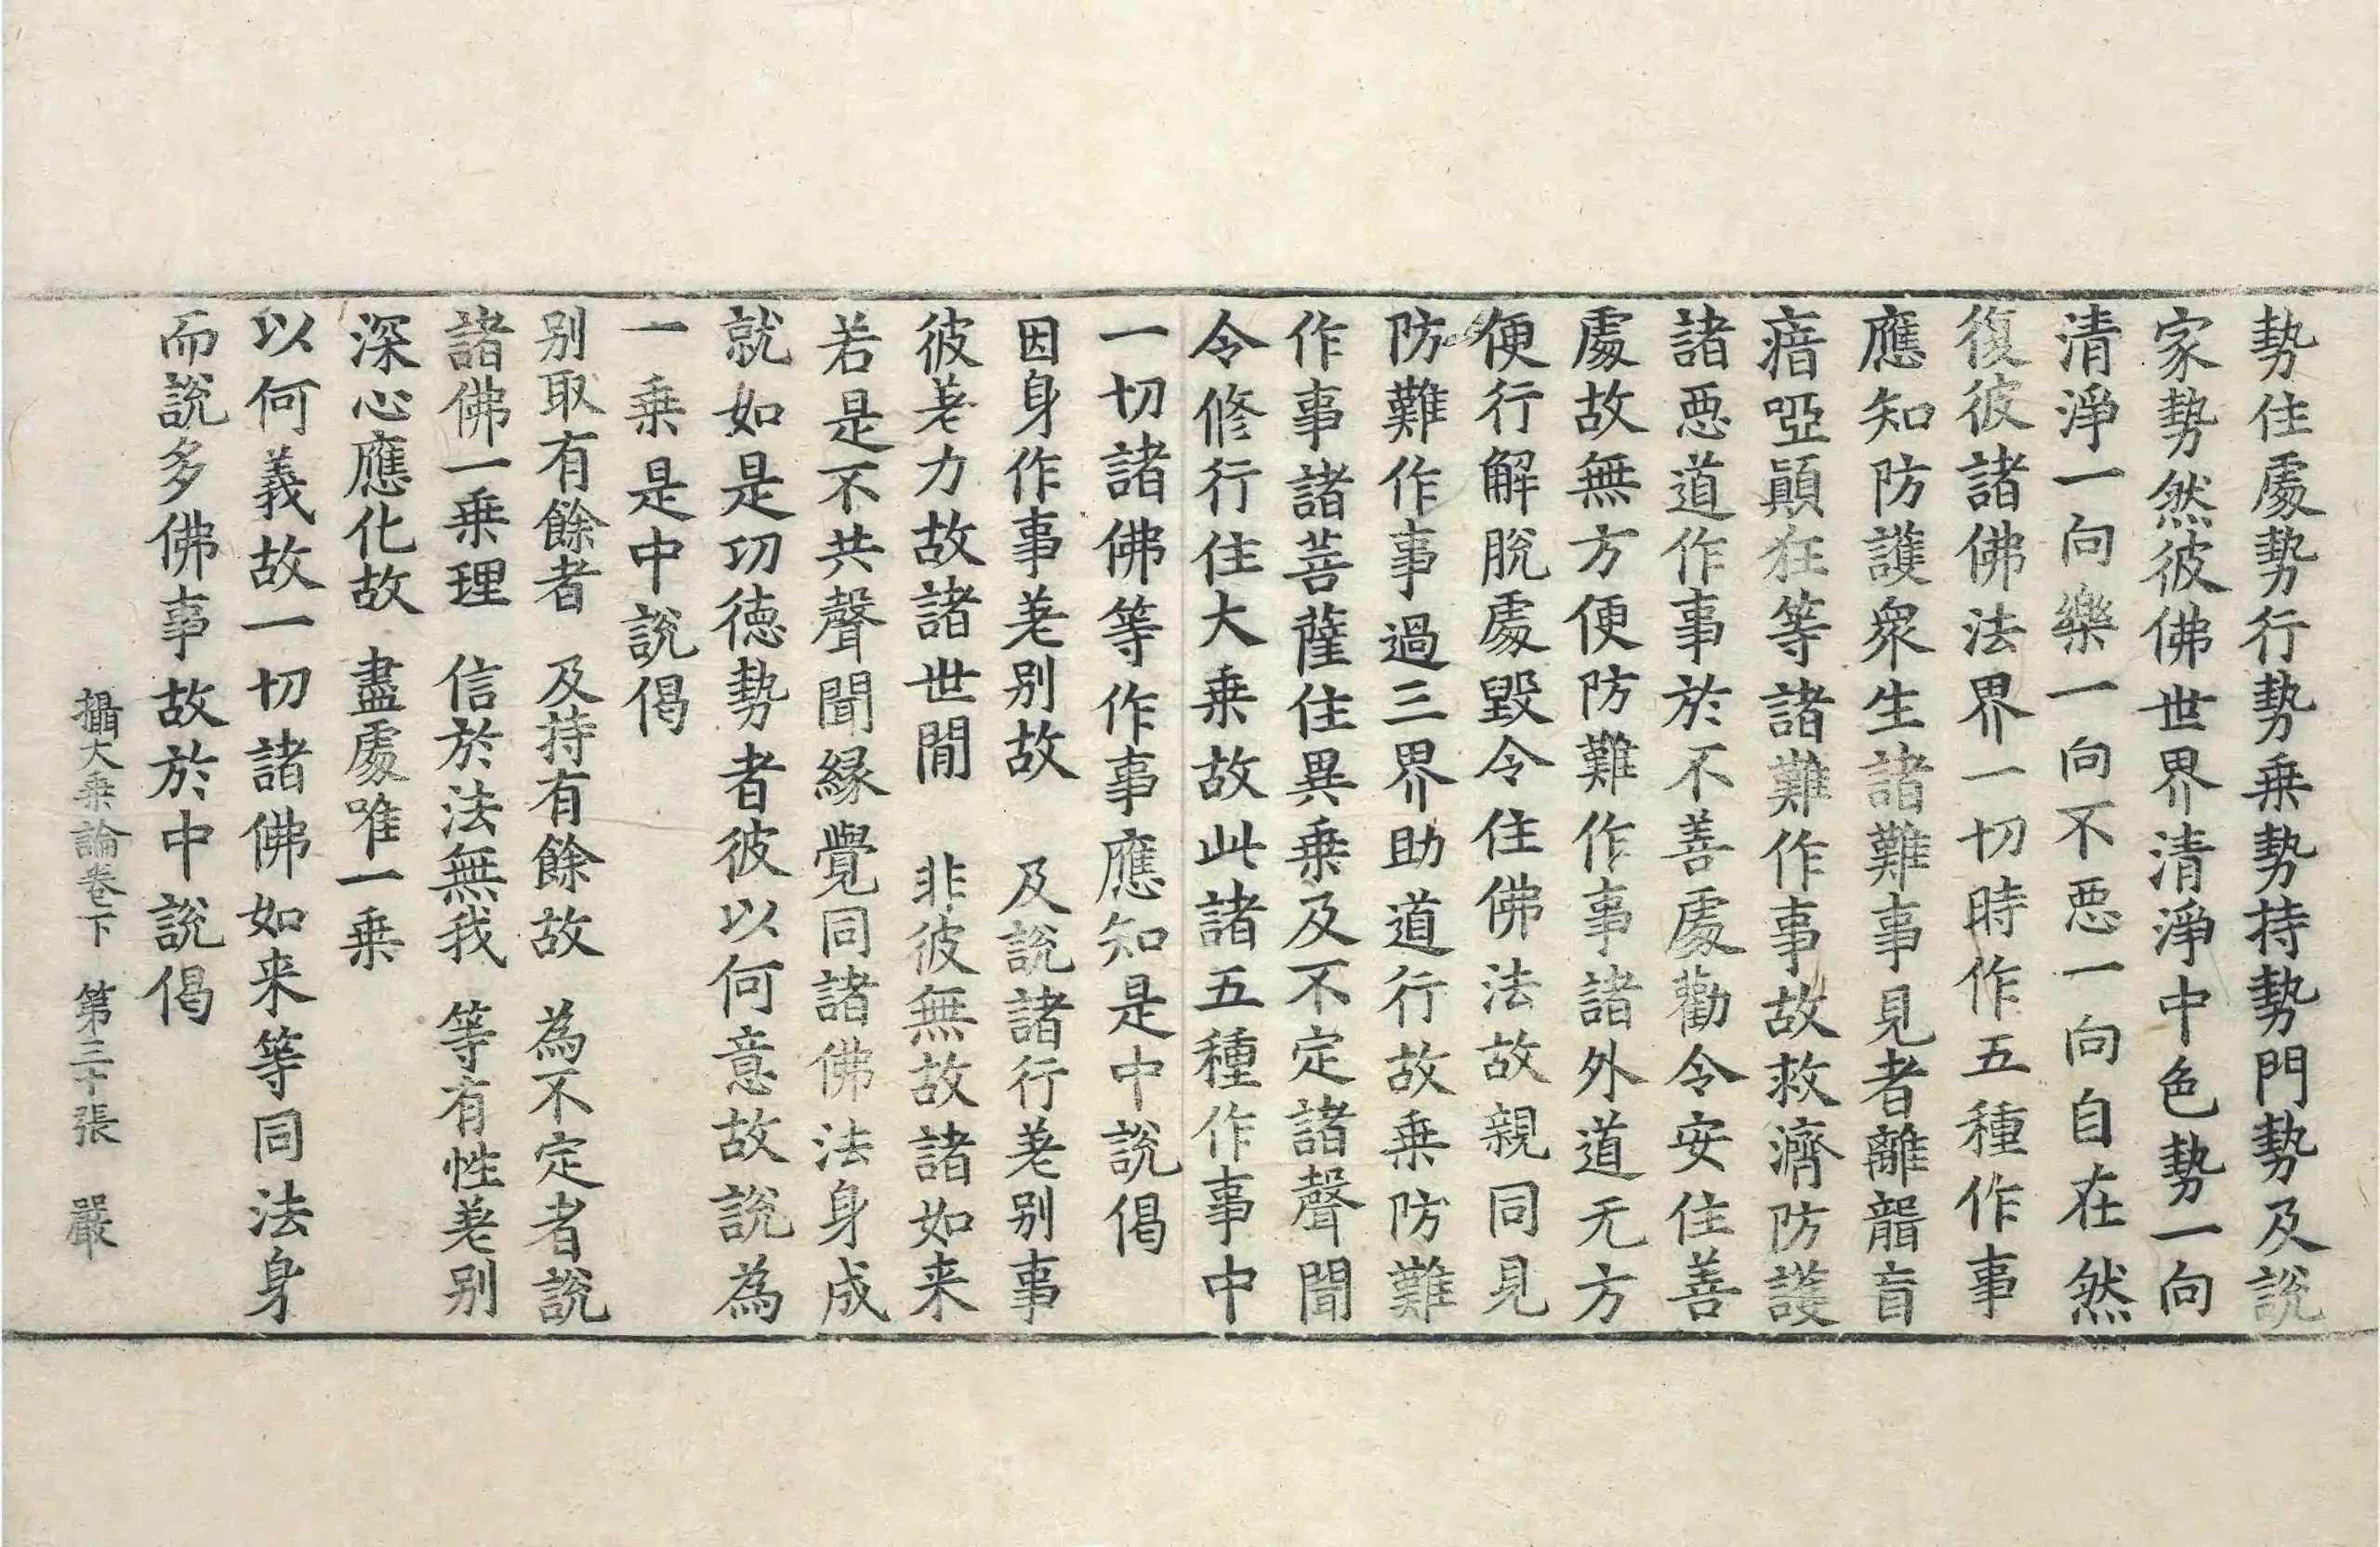 勢住處勢行勢乗勢持勢門勢及說
家勢然彼佛世界清淨中色勢一向
清淨一向樂一向不惡一向自在然
復彼諸佛法界一切時作五種作事
應知防護衆生諸難事見者離龤盲
瘖啞顚狂等諸難作事故救濟防護
諸惡道作事於不善處勸令安住善
處故無方便防難作事諸外道无方
便行解脫處毀令住佛法故親同見
防難作事過三界助道行故乗防難
作事諸菩薩住異乗及不定諸聲聞
令修行住大乗故此諸五種作事中
一切諸佛等作事應知是中說偈
因身作事差別故　及說諸行差別事
彼差力故諸世間　非彼無故諸如来
若是不共聲聞緣覺同諸佛法身成
就如是功德勢者彼以何意故說為
一乗是中說偈
別取有餘者　及持有餘故　為不定者說
諸佛一乗理　信於法無我　等有性差別
深心應化故　盡處唯一乗
以何義故一切諸佛如来等同法身
而說多佛事故於中說偈
攝大乗論卷下　第三十張　嚴